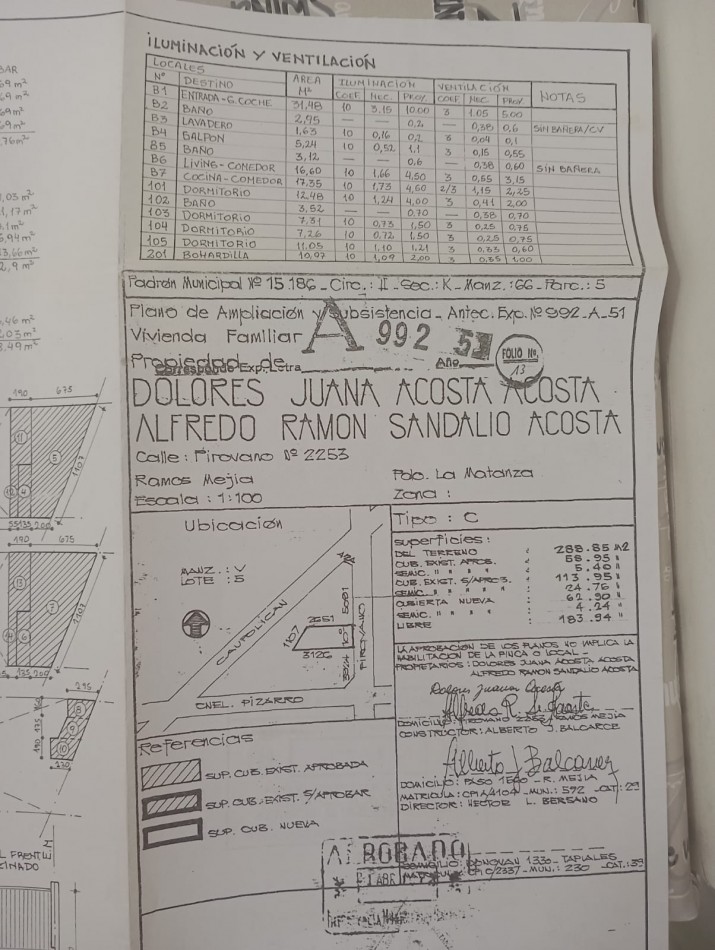 ILUMINACIÓN Y VENTILACIÓN
LOCALES AREA ILUMINACION VENTILACIÓN NOTAS
Nº DESTINO M² COEF. NEC. PROY. COEF NEC. PROY
B1 ENTRADA-G. COCHE 31,48 10 3,15 10.00 3 1.05 5.00
B2 BAÑO 2,95 — — 0,2 — 0,38 0,6 SIN BAÑERA/CV
B3 LAVADERO 1,63 10 0,16 0,2 3 0,04 0,1
B4 GALPON 5,24 10 0,52 1,1 3 0,15 0,55
B5 BAÑO 3,12 — — 0,6 — 0,38 0,60 SIN BAÑERA
B6 LIVING-COMEDOR 16,60 10 1,66 4,50 3 0,55 3,15
B7 COCINA-COMEDOR 17,35 10 1,73 4,60 2/3 1,15 2,25
101 DORMITORIO 12,48 10 1,24 4,00 3 0,41 2,00
102 BAÑO 3,52 — — 0,70 — 0,38 0,70
103 DORMITORIO 7,31 10 0,73 1,50 3 0,25 0,75
104 DORMITORIO 7,26 10 0,72 1,50 3 0,25 0,75
105 DORMITORIO 11.05 10 1,10 1,21 3 0,60
201 BOHARDILLA 10,97 10 1,09 2,00 3 0,35 1,00
Padrón Municipal Nº 15.186_Circ.: II_Sec.: K_Manz.:66_Parc.: 5
Plano de Ampliación y Subsistencia_Antec. Exp. Nº 992_A_51
Vivienda Familiar A 992 51
Propiedad de
Corresponde Exp. Letra Año
FOLIO No.
13
DOLORES JUANA ACOSTA ACOSTA
ALFREDO RAMON SANDALIO ACOSTA
Calle: Pirovano Nº 2253
Ramos Mejia Pdo. La Matanza
Escala : 1:100 Zona :
Ubicación
MANZ.: V
LOTE : 5
CAUPOLICAN
PIROVANO
2651
1107
3126
5081
CNEL. PIZARRO
Tipo : C
superficies:
DEL TERRENO 288.85 M2
CUB. EXIST. APROB. 58.95 "
SEMIC. " " " 5.40 "
CUB. EXIST. S/APROB. 113.95 "
SEMIC. " " " 24.76 "
CUBIERTA NUEVA 62.90 "
SEMIC. " 4.24 "
LIBRE 183.94 "
LA APROBACIÓN DE LOS PLANOS NO IMPLICA LA
HABILITACIÓN DE LA FINCA O LOCAL_
PROPIETARIOS : DOLORES JUANA ACOSTA ACOSTA
ALFREDO RAMON SANDALIO ACOSTA
DOMICILIO: PIROVANO 2253/RAMOS MEJIA
CONSTRUCTOR: ALBERTO J. BALCARCE
DOMICILIO: PASO 1560 - R. MEJIA
MATRICULA: CPIA/4104 - MUN.: 592 - CAT.: 2ª
DIRECTOR: HECTOR L. BERSANO
DOMICILIO: DONOVAN 1330- TAPIALES
CPIC/2337 - MUN.: 230 - CAT.: 3ª
Referencias
SUP. CUB. EXIST. APROBADA
SUP. CUB. EXIST. S/APROBAR
SUP. CUB. NUEVA
190 675
1107
190 675
1107
295
230